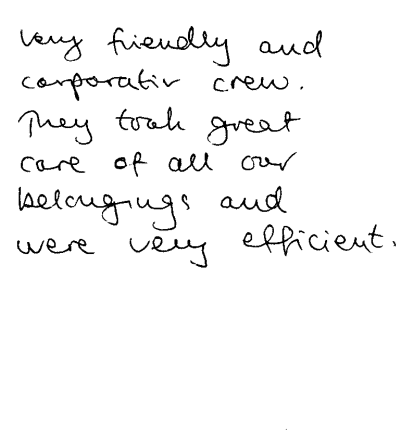 very friendly and
corporativ crew.
They took great
care of all our
belongings and
were very efficient.